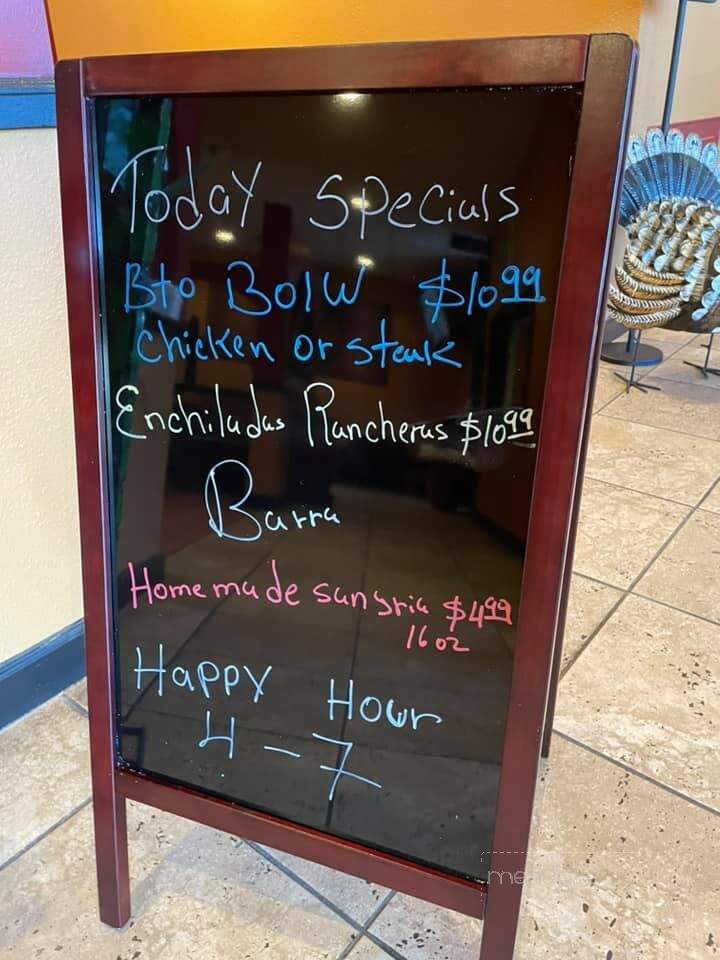 Today Specials
Bto Bolw $10.99
chicken or steak
Enchiladas Rancheras $10.99
Barra
Homemade sangria $4.99
16 oz
Happy Hour
4-7